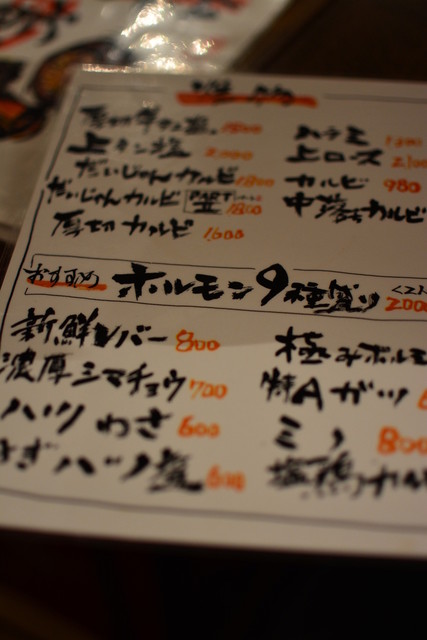 厚切牛タン塩 1800
上タン塩 2,000
だいじゅんカルビ 1800
だいじゅんカルビ 1800
厚切カルビ 1,600
ハラミ
上ロース 2,100
カルビ 980
中落ちカルビ
おすすめ ホルモン9種盛り 2000
新鮮レバー 800
濃厚シマチョウ 700
ハツわさ 600
ねぎハツ塩 600
極みホルモ
特Aガツ
ミノ 800
塩鶏カル